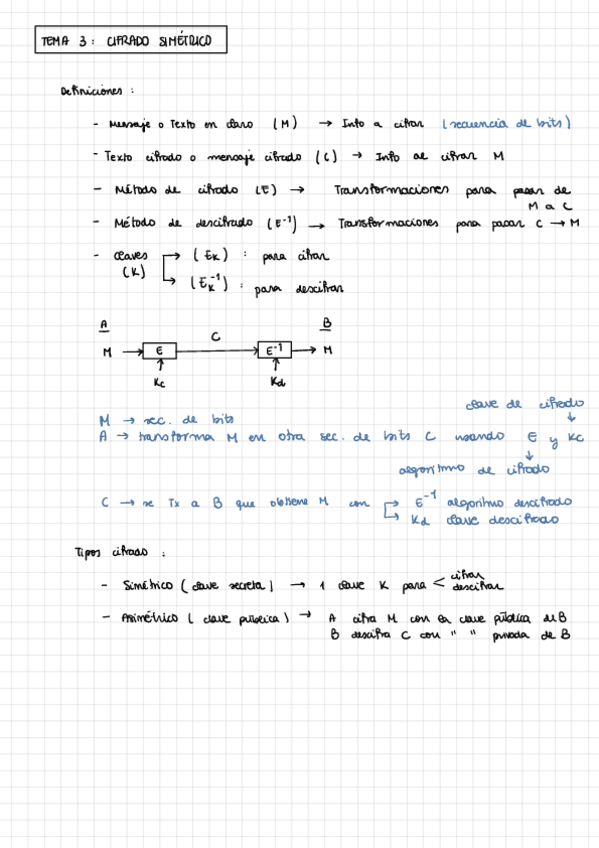 TEMA 3: CIFRADO SIMÉTRICO
Definiciones:
- Mensaje o Texto en claro (M) → Info a cifrar (secuencia de bits)
- Texto cifrado o mensaje cifrado (C) → Info al cifrar M
- Método de cifrado (E) → Transformaciones para pasar de
M a C
- Método de descifrado (E⁻¹) → Transformaciones para pasar C → M
- Claves → (Ek) : para cifrar
(K) → (Ek⁻¹) : para descifrar
A B
C
M → E → E⁻¹ → M
Kc Kd
clave de cifrado
M → sec. de bits
A → transforma M en otra sec. de bits C usando E y Kc
algoritmo de cifrado
C → se Tx a B que obtiene M con → E⁻¹ algoritmo descifrado
→ Kd clave descifrado
Tipos cifrado :
- Simétrico (clave secreta) → 1 clave K para < cifrar
descifrar
- Asimétrico (clave pública) → A cifra M con la clave pública de B
B descifra C con " " privada de B